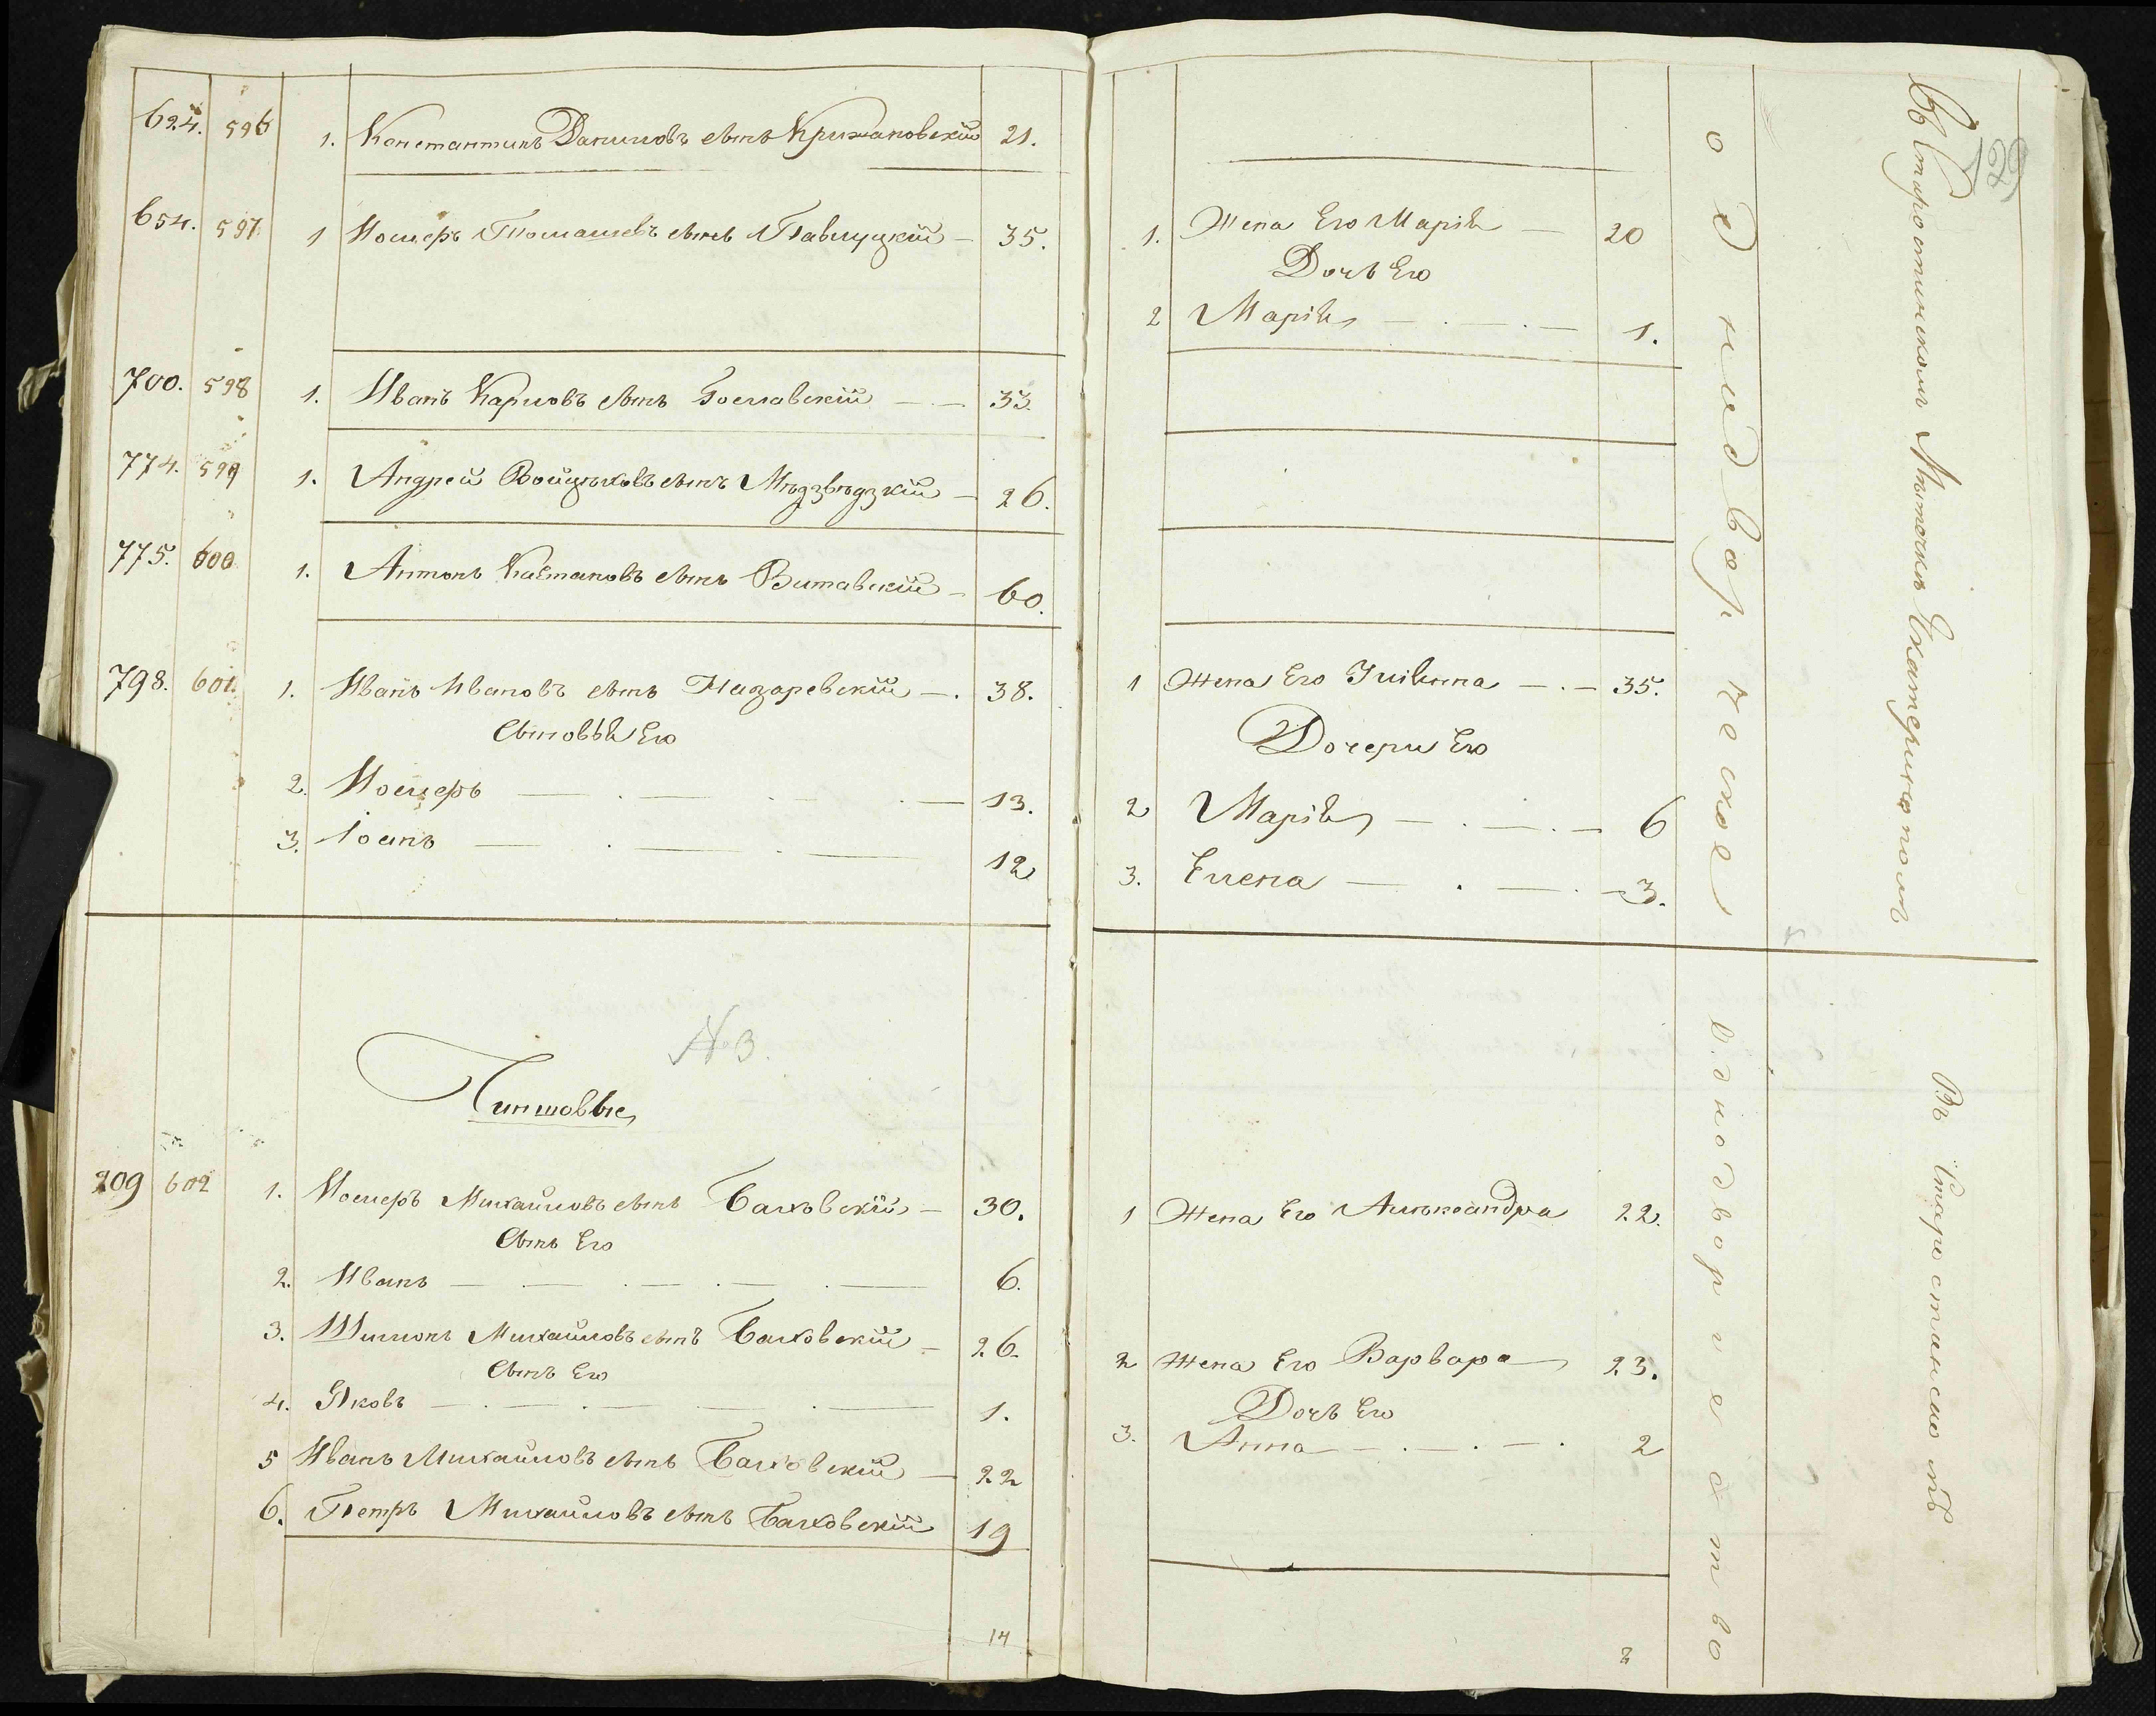 129
694. 596 1. Константинъ Даниловъ сынъ Крижановскій 21.
654. 597 1 Іосифъ Томашевъ сынъ Павлуцкій — 35.
1. Жена Его Марія — 20
Дочь Его
2 Марія — 1.
700. 598 1. Иванъ Карловъ сынъ Гославскій — 33.
774. 599 1. Андрей Войцѣховъ сынъ Мѣдзвѣдзкій — 26.
775. 600 1. Антонъ Каетановъ сынъ Витавскій — 60.
798. 601. 1. Иванъ Ивановъ сынъ Назаревскій — 38.
1 Жена Его Юліянна — 35.
Сыновья Его
Дочери Его
2. Іосифъ — 13.
2 Марія — 6
3. Іоанъ — 12
3. Елена — 3.
Въ Староспинском Мѣстечкѣ Екатеринополѣ
однодворческое
N 3.
Чиншовые
209 602 1. Іосифъ Михайловъ сынъ Балковскій — 30.
1 Жена Его Александра 22.
Сынъ Его
2. Иванъ — 6.
3. Шимонъ Михайловъ сынъ Балковскій — 26.
2 Жена Его Варвара 23.
Сынъ Его
Дочь Его
4. Яковъ — 1.
3. Анна — 2
5 Иванъ Михайловъ сынъ Балковскій — 22
6. Петръ Михайловъ сынъ Балковскій 19
14
8
въ однодворчество
Въ Старостинском